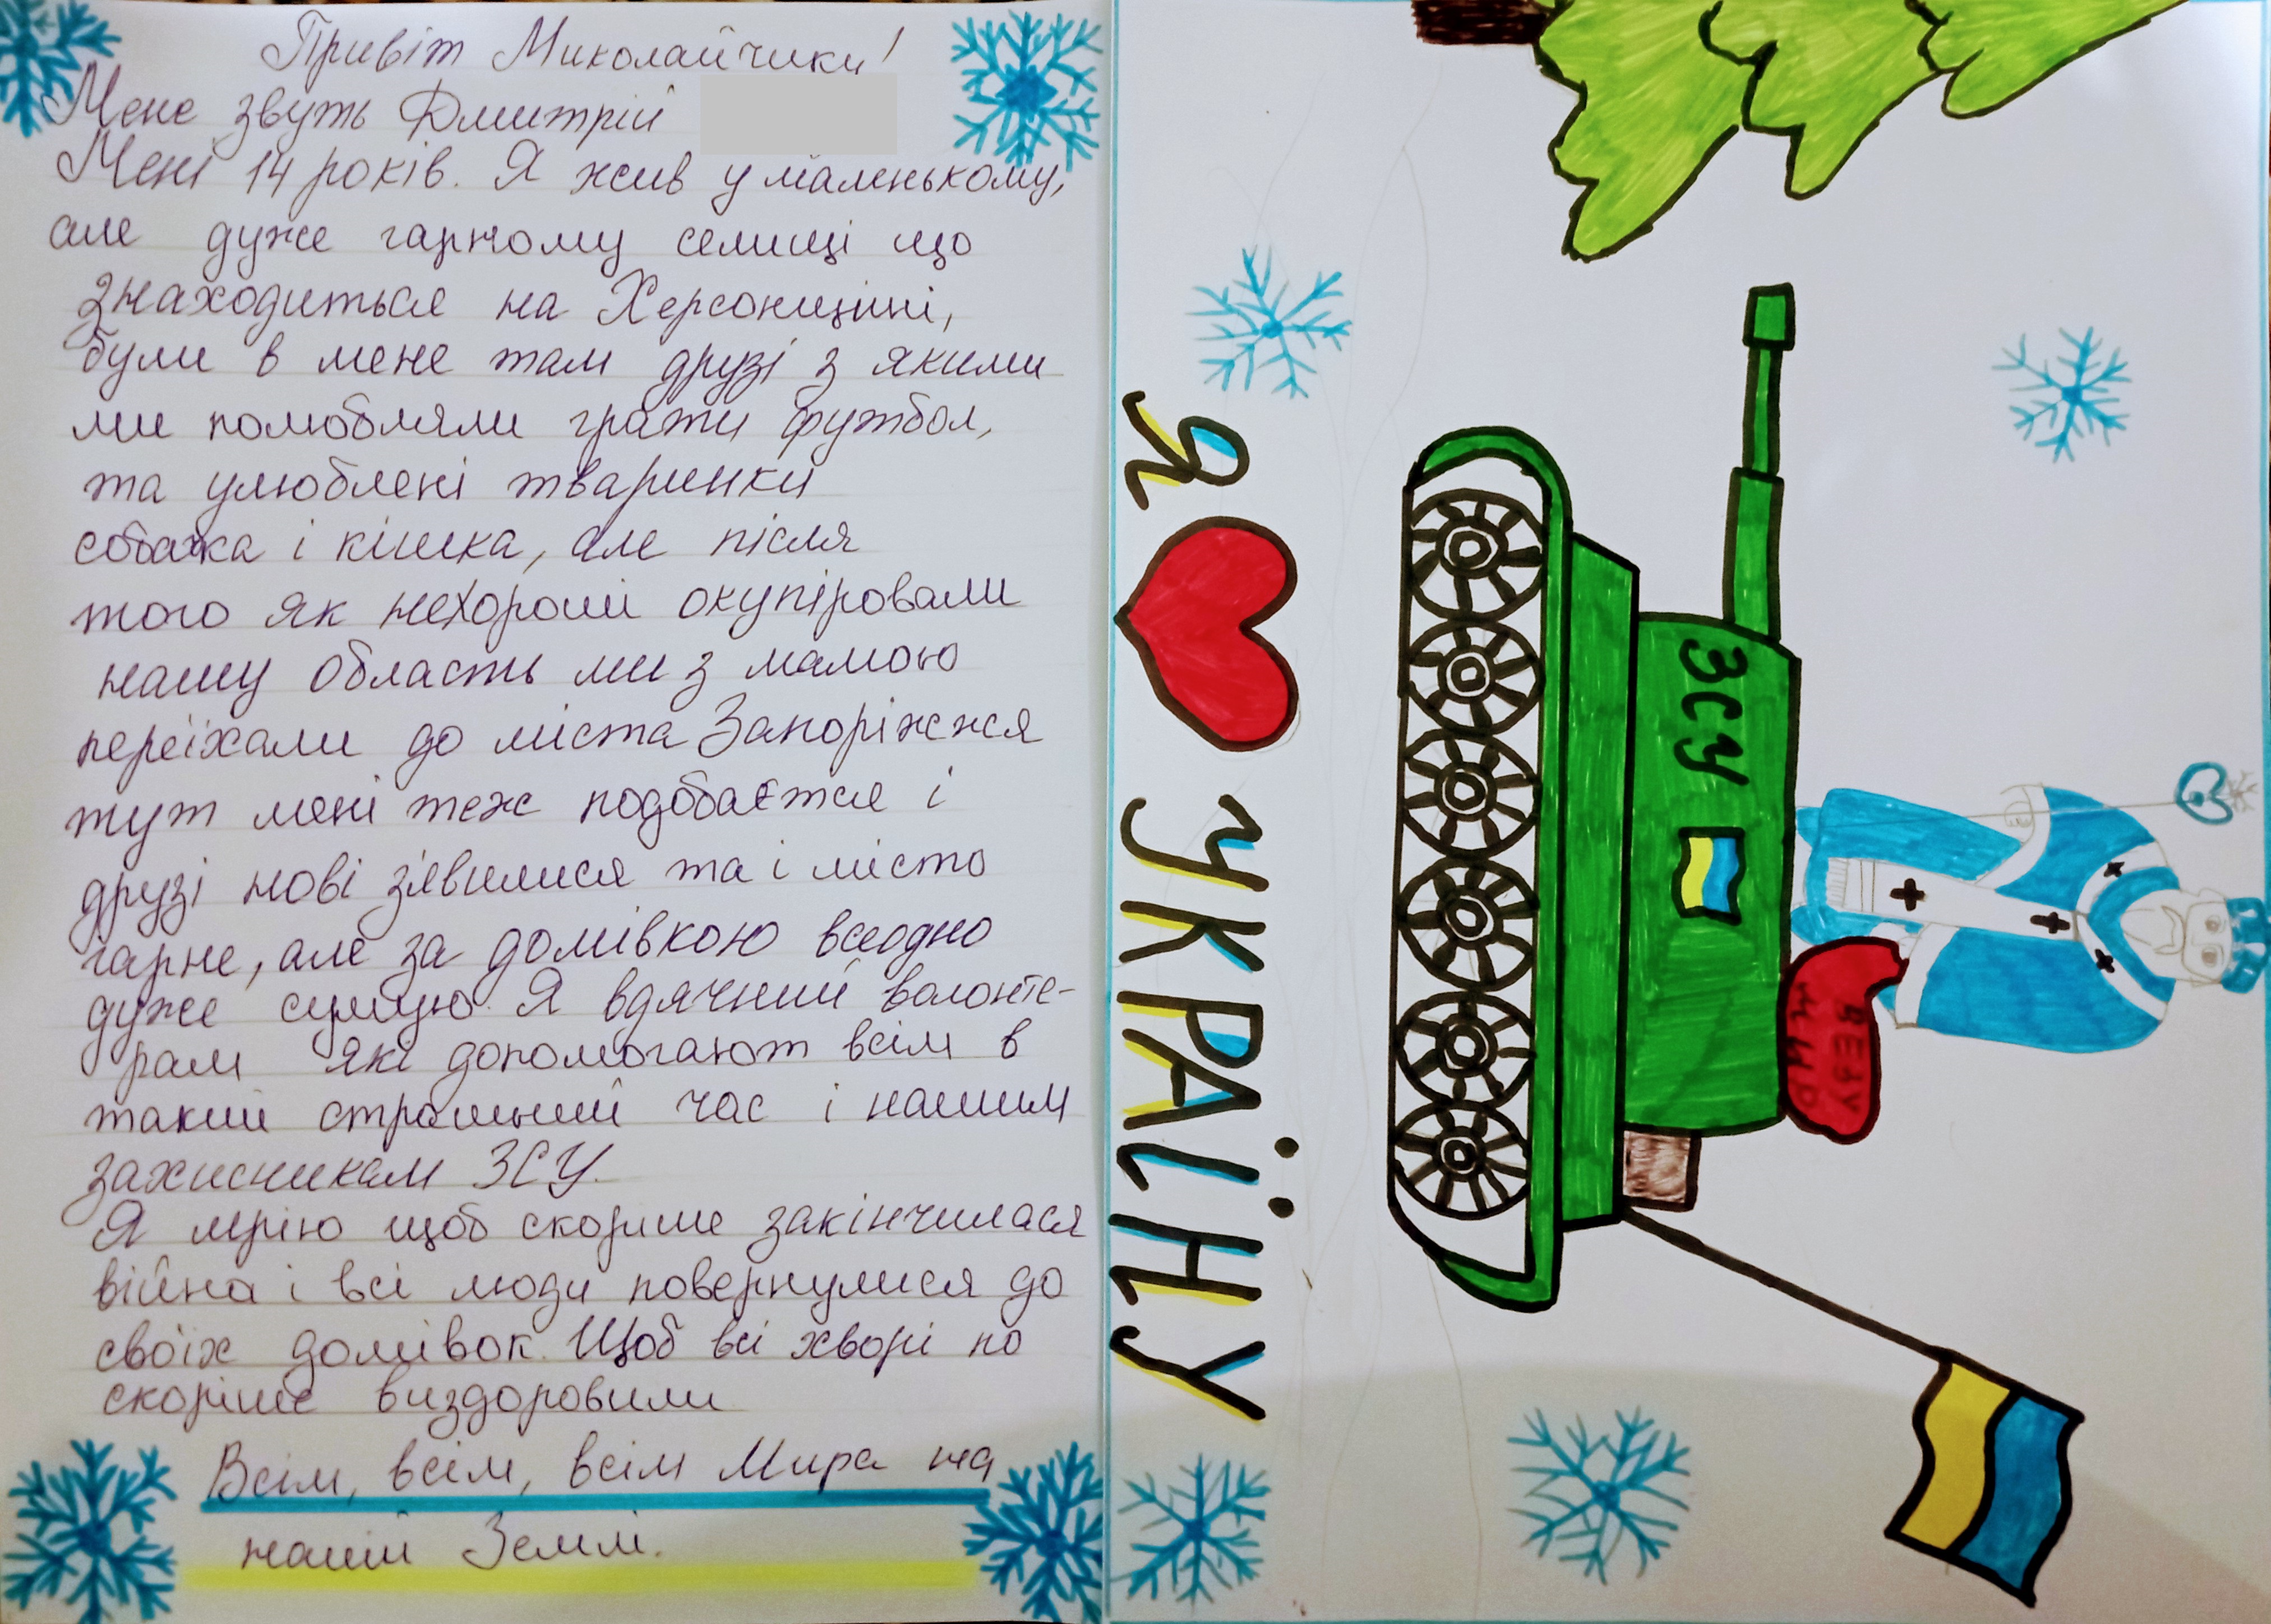 Привіт Миколайчики!
Мене звуть Дмитрій
Мені 14 років. Я жив у маленькому,
але дуже гарному селищі що
знаходиться на Херсонщині,
були в мене там друзі з якими
ми полюбляли грати футбол,
та улюблені тваринки
собака і кішка, але після
того як нехороші окупіровали
нашу область ми з мамою
переїхали до міста Запоріжжя
тут мені теж подобається і
друзі нові з'явилися та і місто
гарне, але за домівкою всеодно
дуже сумую. Я вдячний волонте-
рам які допомогают всім в
такий страшний час і нашим
захисникам ЗСУ.
Я мрію щоб скоріше закінчилася
війна і всі люди повернулися до
своїх домівок. Щоб всі хворі по
скоріше виздоровили
Всім, всім, всім Мира на
нашій Землі.
Я УКРАЇНУ
ЗСУ
ВЕЗУ
МИР